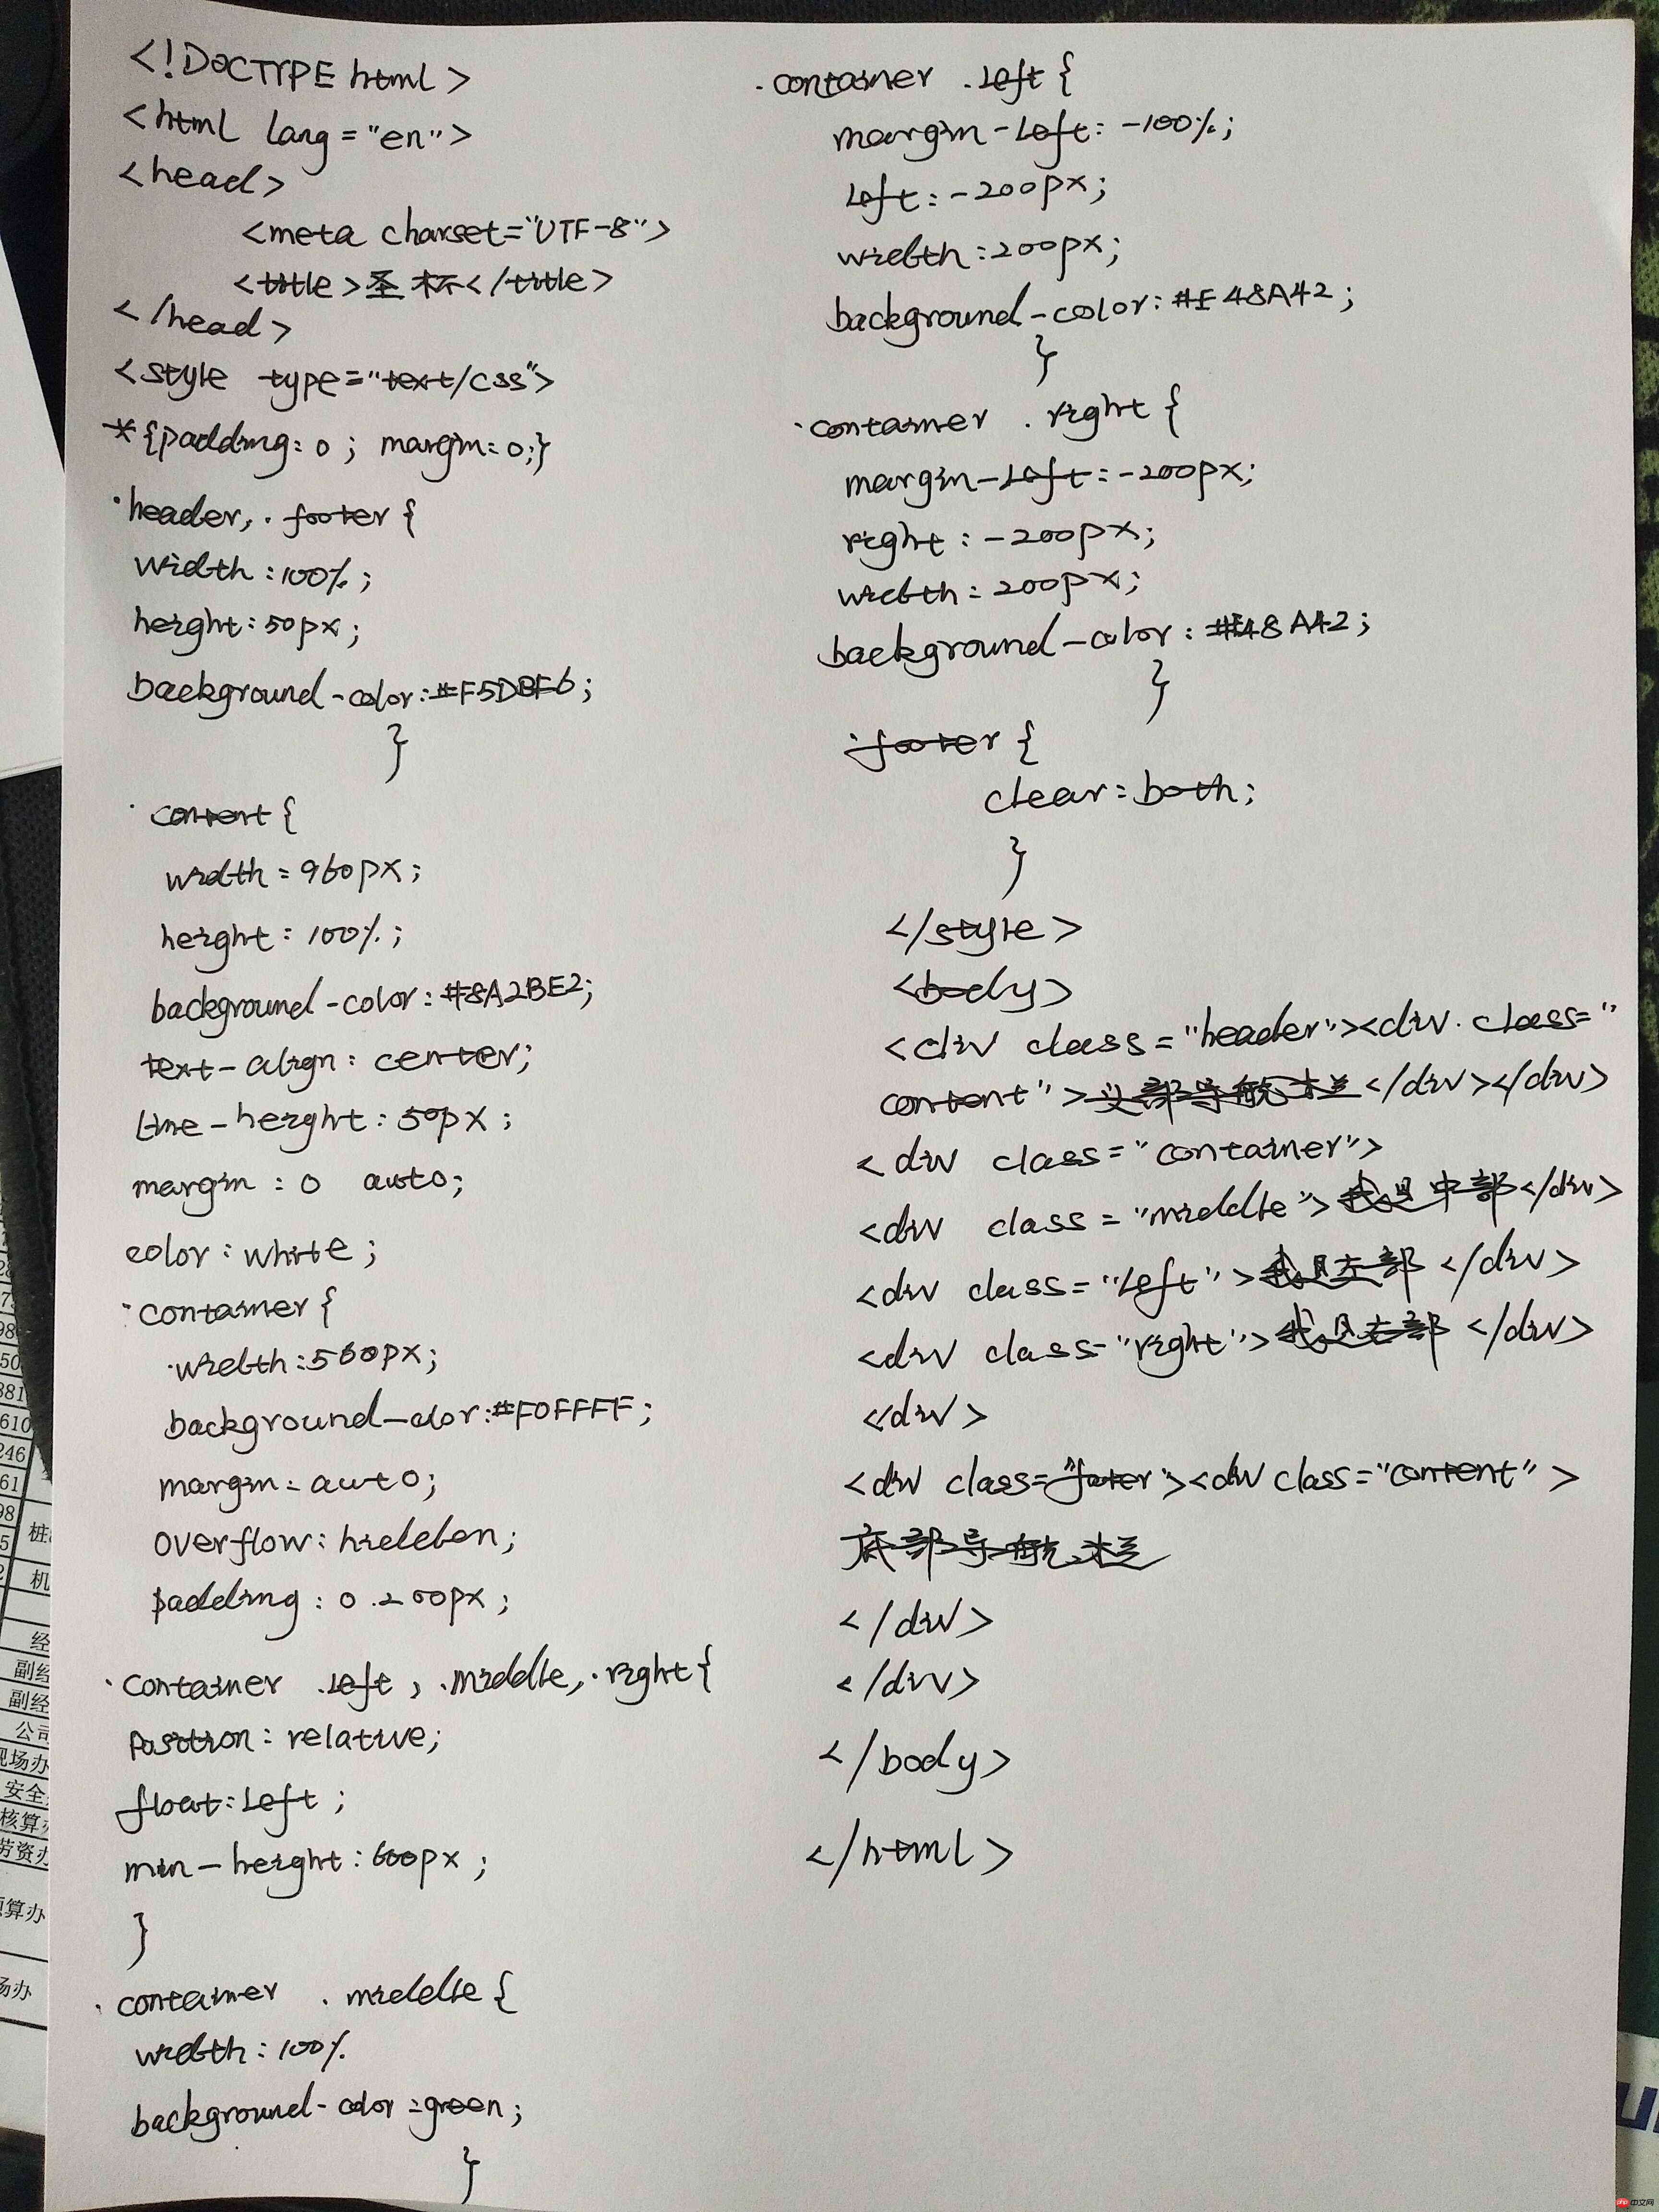 <!DOCTYPE html>
<html lang="en">
<head>
<meta charset="UTF-8">
<title>圣杯</title>
</head>
<style type="text/css">
*{padding:0; margin:0;}
.header, .footer{
width:100%;
height:50px;
background-color:#F5DBF6;
}
.content{
width:960px;
height:100%;
background-color:#8A2BE2;
text-align:center;
line-height:50px;
margin:0 auto;
color:white;
.container{
.width:560px;
background-color:#F0FFFF;
margin:auto;
overflow:hidden;
padding:0 200px;
.container .left, .middle, .right{
Position:relative;
float:left;
min-height:600px;
}
.container .middle{
width:100%
background-color:green;
}
.container .left{
margin-left:-100%;
left:-200px;
width:200px;
background-color:#E48A42;
}
.container .right{
margin-left:-200px;
right:-200px;
width:200px;
background-color:#E48A42;
}
.footer{
clear:both;
}
</style>
<body>
<div class="header"><div class="
content">头部导航栏</div></div>
<div class="container">
<div class="middle">我是中部</div>
<div class="left">我是左部</div>
<div class="right">我是右部</div>
<div>
<div class="footer"><div class="content">
底部导航栏
</div>
</div>
</body>
</html>
经
副经
副经
公司
现场办
安全
核算
劳资办
算办
场办
桩
机
610
246
61
98
php 中文网